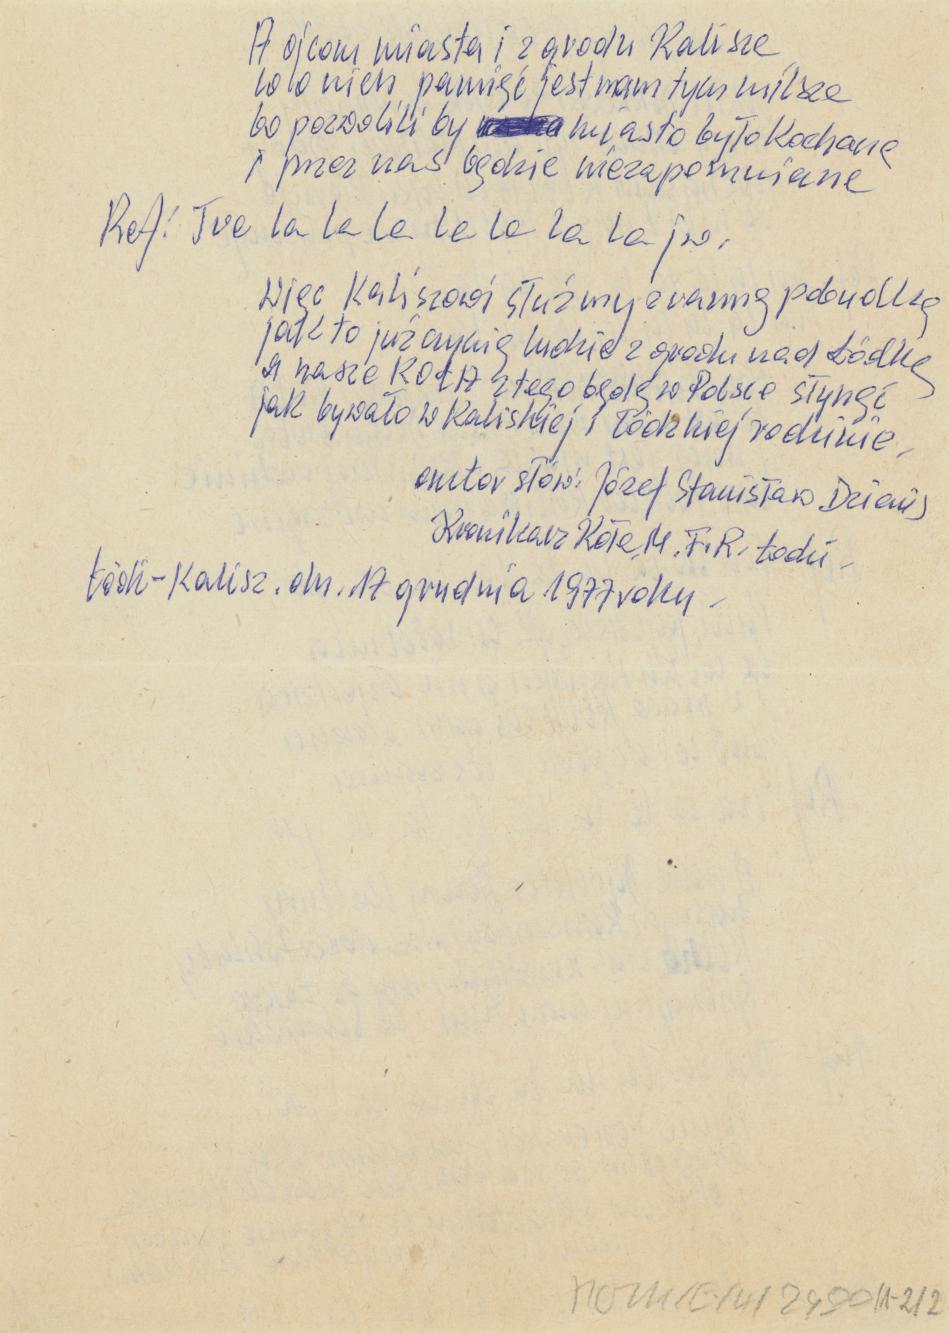 A ojcom miasta i z grodu Kalisza
to o nich pamięć jest nam tym milsza
bo pozwolili by miasto było kochane
i przez nas będzie niezapomniane
Ref: Tra la la la la la la la jw.
Więc Kaliszowi służmy z varmą pobudką
jak to już czynią ludzie z grodu nad Łódką
A nasze KOŁA z tego będą w Polsce słynąć
jak bywało w Kaliskiej i Łódzkiej rodzinie.
autor słów: Józef Stanisław
Kronikarz Koła M.F.R. Łodzi.
Łódź-Kalisz. dn. 17 grudnia 1977 roku.
2490/A-2/2